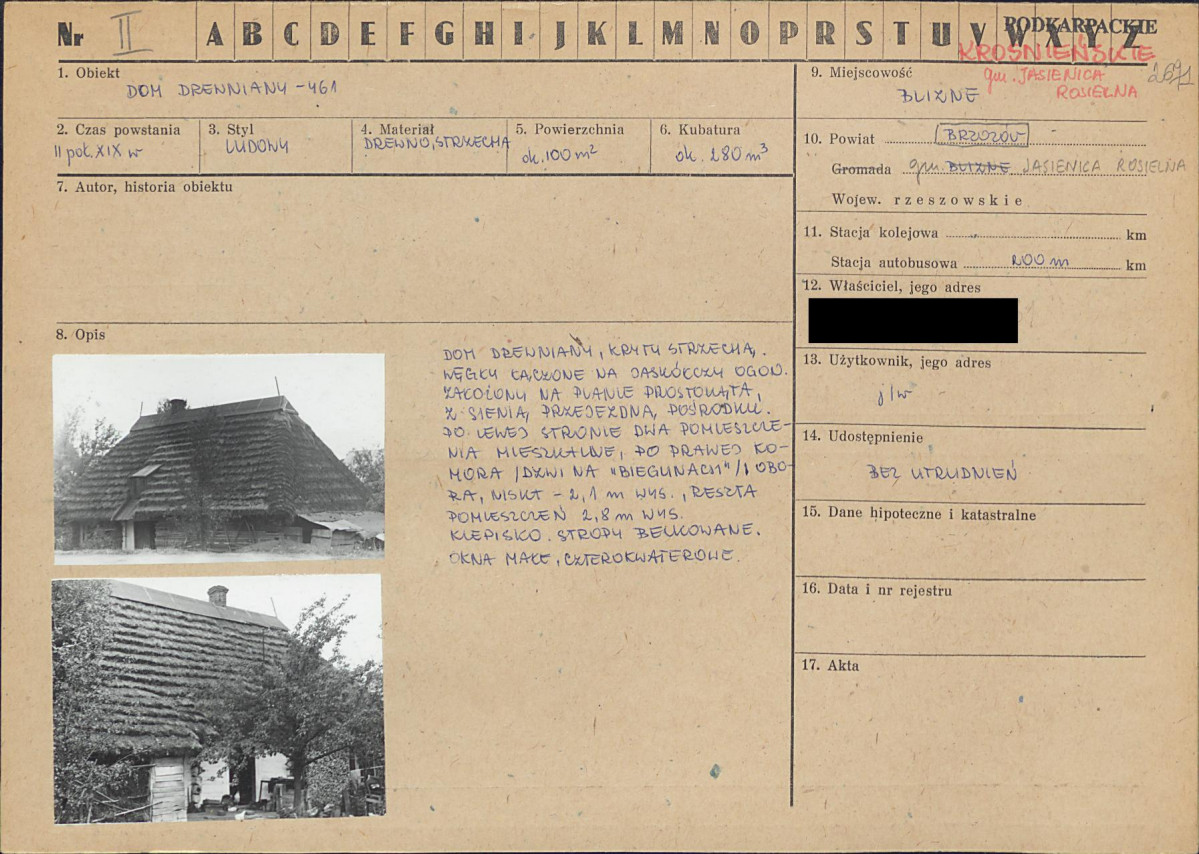 Nr II A B C D E F G H I J K L M N O P R S T U V W X Y Z
PODKARPACKIE
KROŚNIEŃSKIE
gm. JASIENICA
ROSIELNA
2691
1. Obiekt
DOM DREWNIANY – 461
2. Czas powstania
II poł. XIX w
3. Styl
LUDOWY
4. Materiał
DREWNO, STRZECHA
5. Powierzchnia
ok. 100 m²
6. Kubatura
ok. 280 m³
7. Autor, historia obiektu
8. Opis
DOM DREWNIANY, KRYTY STRZECHĄ.
WĘGŁY ŁĄCZONE NA JASKÓŁCZY OGON.
ZAŁOŻONY NA PLANIE PROSTOKĄTA,
Z SIENIĄ PRZEJEZDNĄ POŚRODKU.
PO LEWEJ STRONIE DWA POMIESZCZE-
NIA MIESZKALNE, PO PRAWEJ KO-
MORA /DZWI NA "BIEGUNACH"/ I OBO-
RA, NISKA – 2,1 m WYS., RESZTA
POMIESZCZEŃ 2,8 m WYS.
KLEPISKO. STROPY BELKOWANE.
OKNA MAŁE, CZTEROKWATEROWE.
9. Miejscowość
BLIZNE
10. Powiat BRZOZÓW
Gromada gm. BLIZNE JASIENICA ROSIELNA
Wojew. rzeszowskie
11. Stacja kolejowa km
Stacja autobusowa 200 m km
12. Właściciel, jego adres
13. Użytkownik, jego adres
j/w
14. Udostępnienie
BEZ UTRUDNIEŃ
15. Dane hipoteczne i katastralne
16. Data i nr rejestru
17. Akta